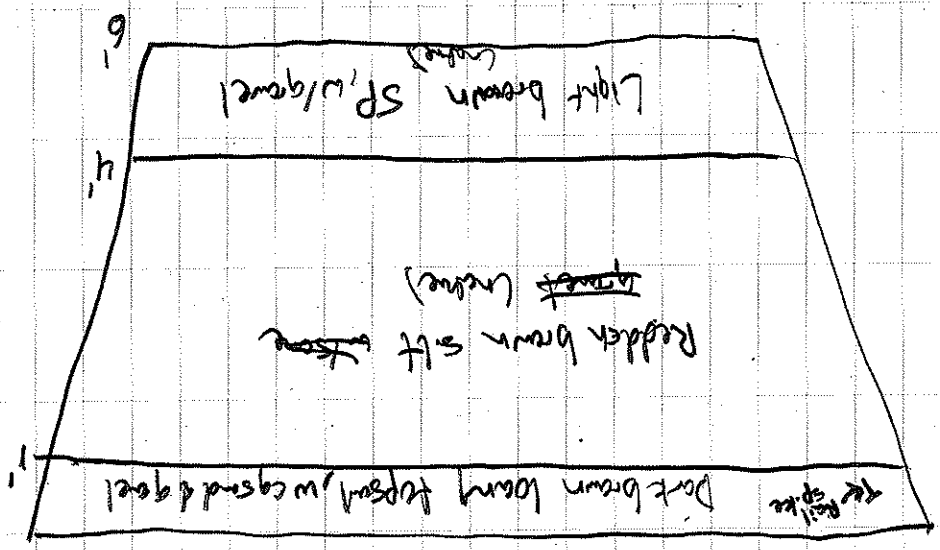 Rail
spike
Dark brown loamy topsoil, w cq sand & gravel
1'
Reddish brown silt
(native)
4'
Light brown SP, w/gravel
(native)
6'